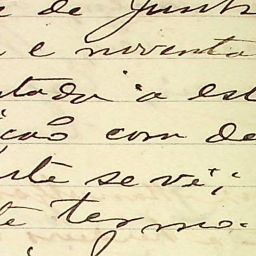 e de Junh
e noventa
tado a est
ção com de
rte se vê,
te termo.